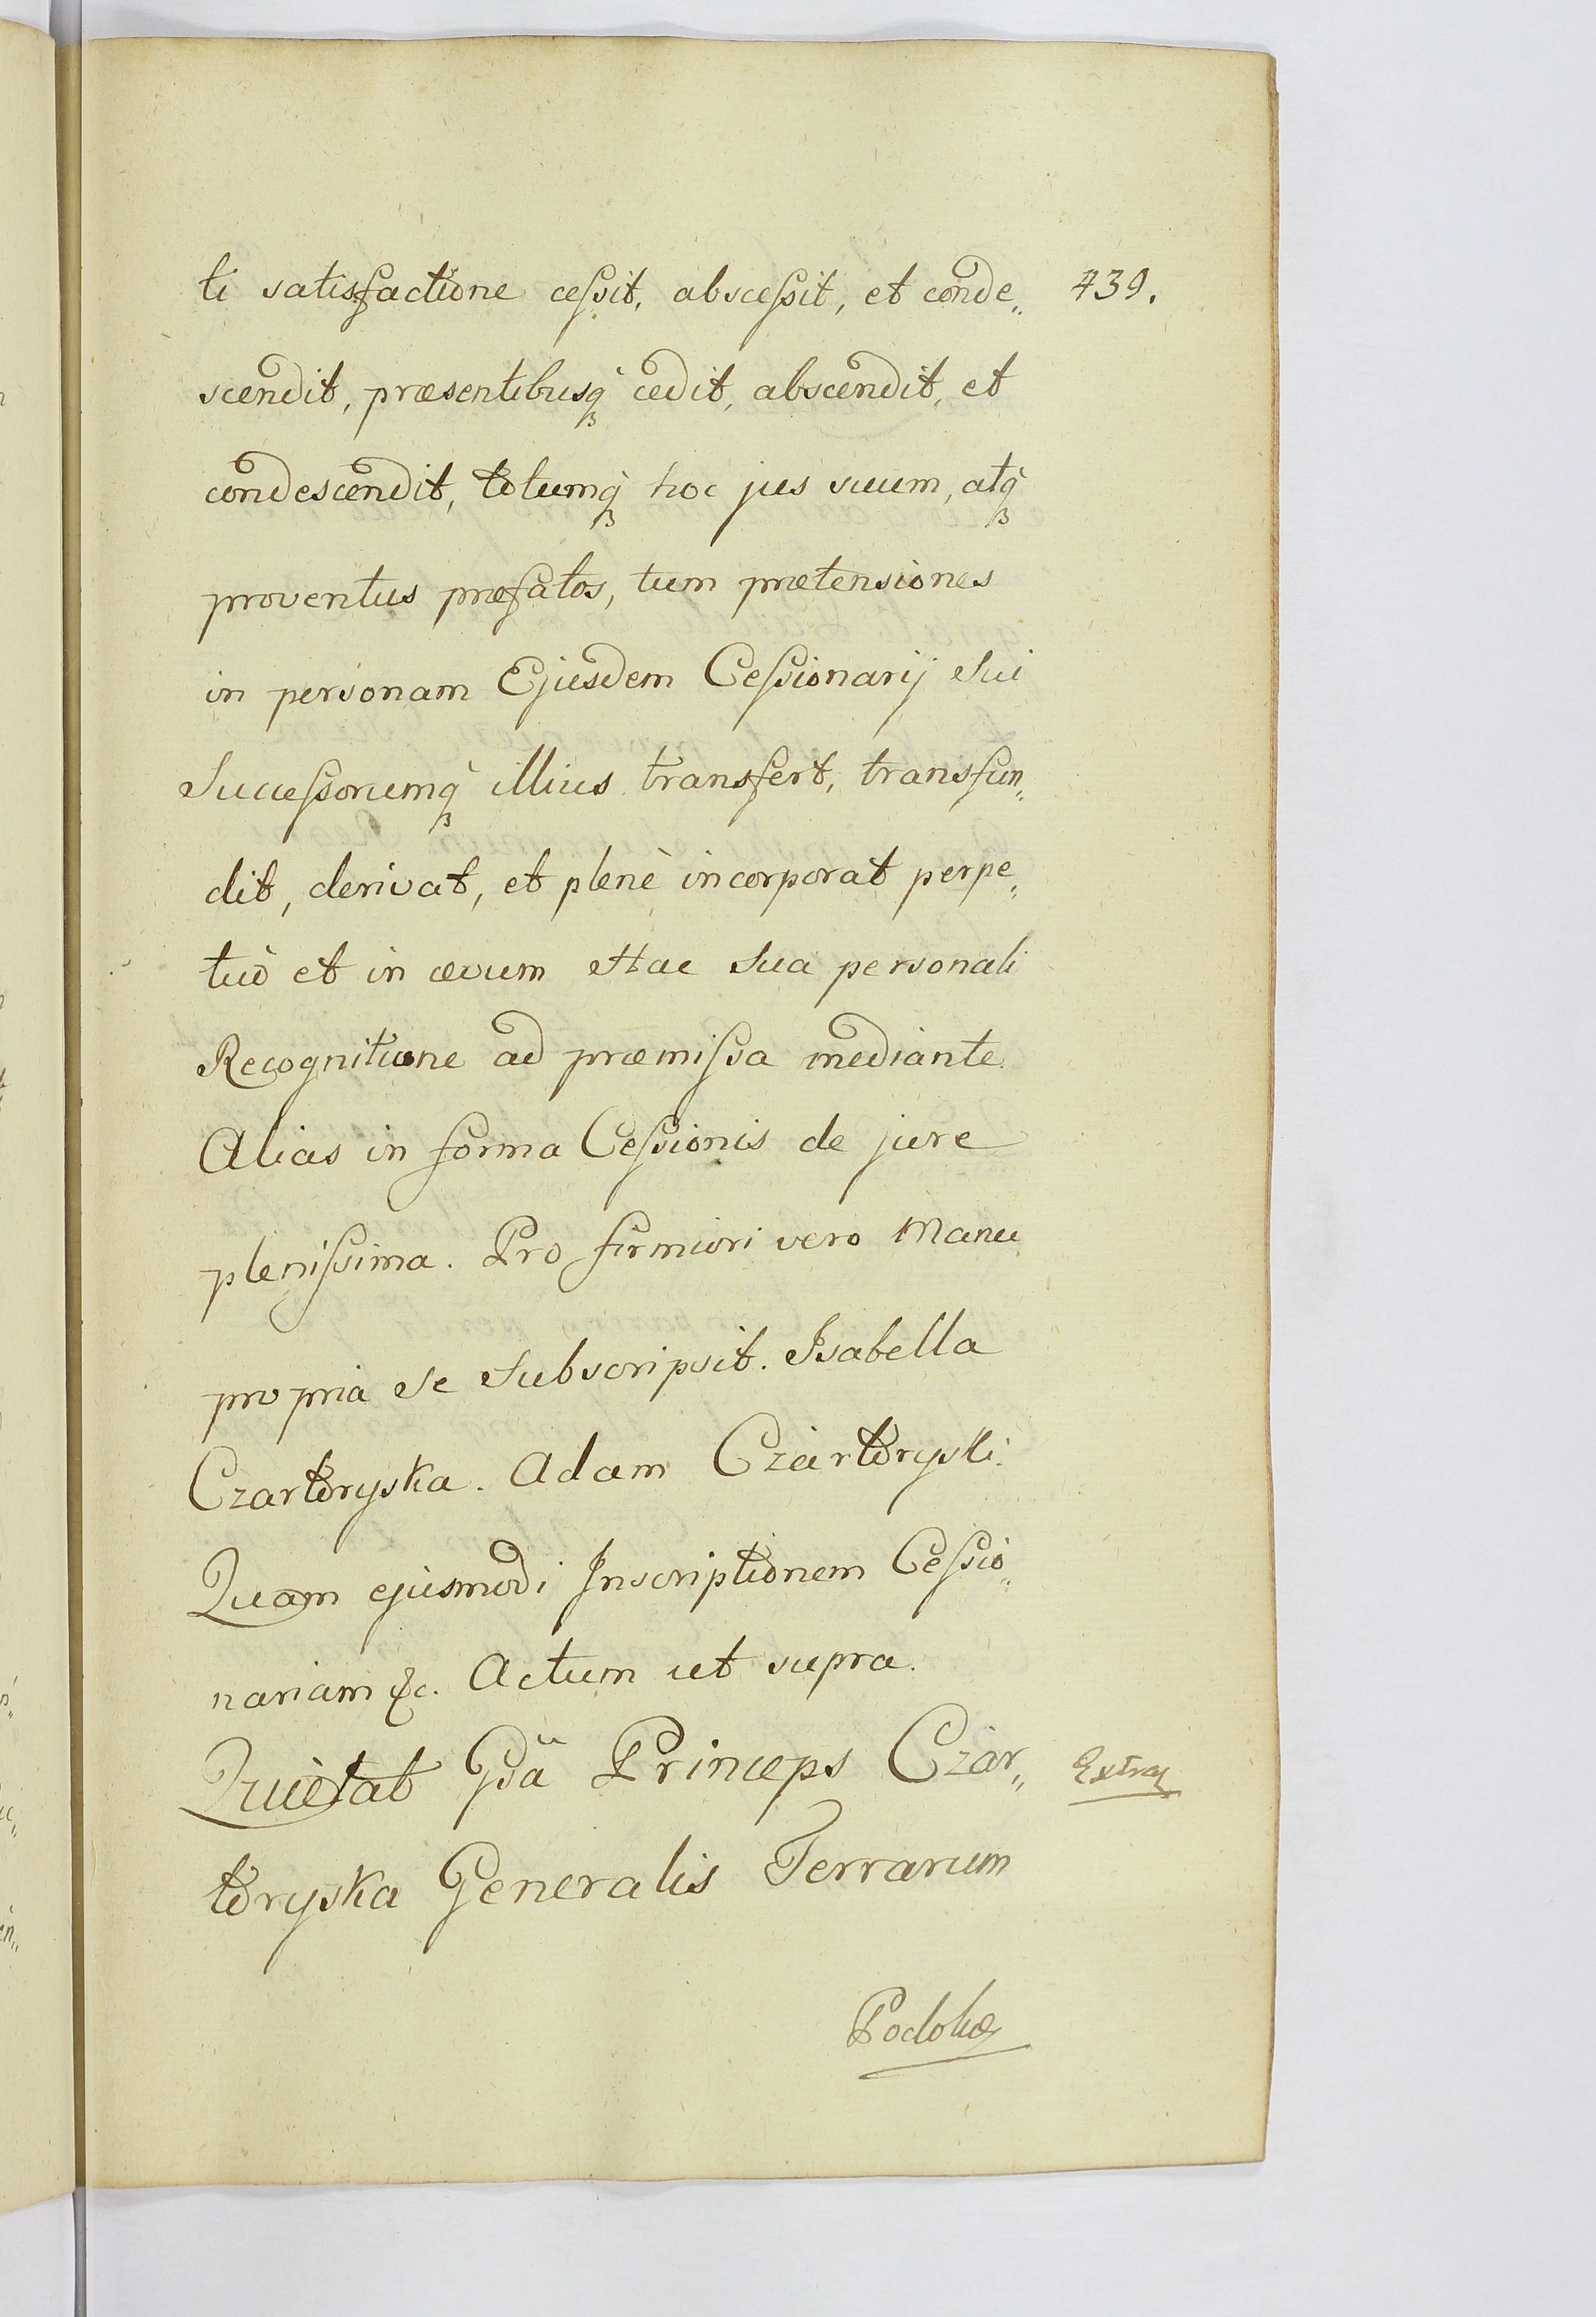 ti satisfactione ceſsit, absceſsit, et conde„ 439.
scendit, præsentibusq́ꝫ cedit, abscendit, et
condescendit, totumq́ꝫ hoc jus suum, atq́ꝫ
proventus præfatos, tum prætensiones
in personam Ejusdem Ceſsionarij Sui
Succeſsorumq́ꝫ illius transfert, transfun„
dit, derivat, et plenè incorporat perpe„
tuò et in ævum Hac Sua personali
Recognitione ad præmiſsa mediante.
Alias in forma Ceſsionis de jure
pleniſsima. Pro firmiori vero Manu
propria Se Subscripsit. Isabella
Czartoryska. Adam Czartoryski.
Quam ejusmodi Inscriptionem Ceſsio„
nariam &c. Actum ut supra.
Quietat Gsã Princeps Czar„ Extra
toryska Generalis Terrarum
Podoliæ